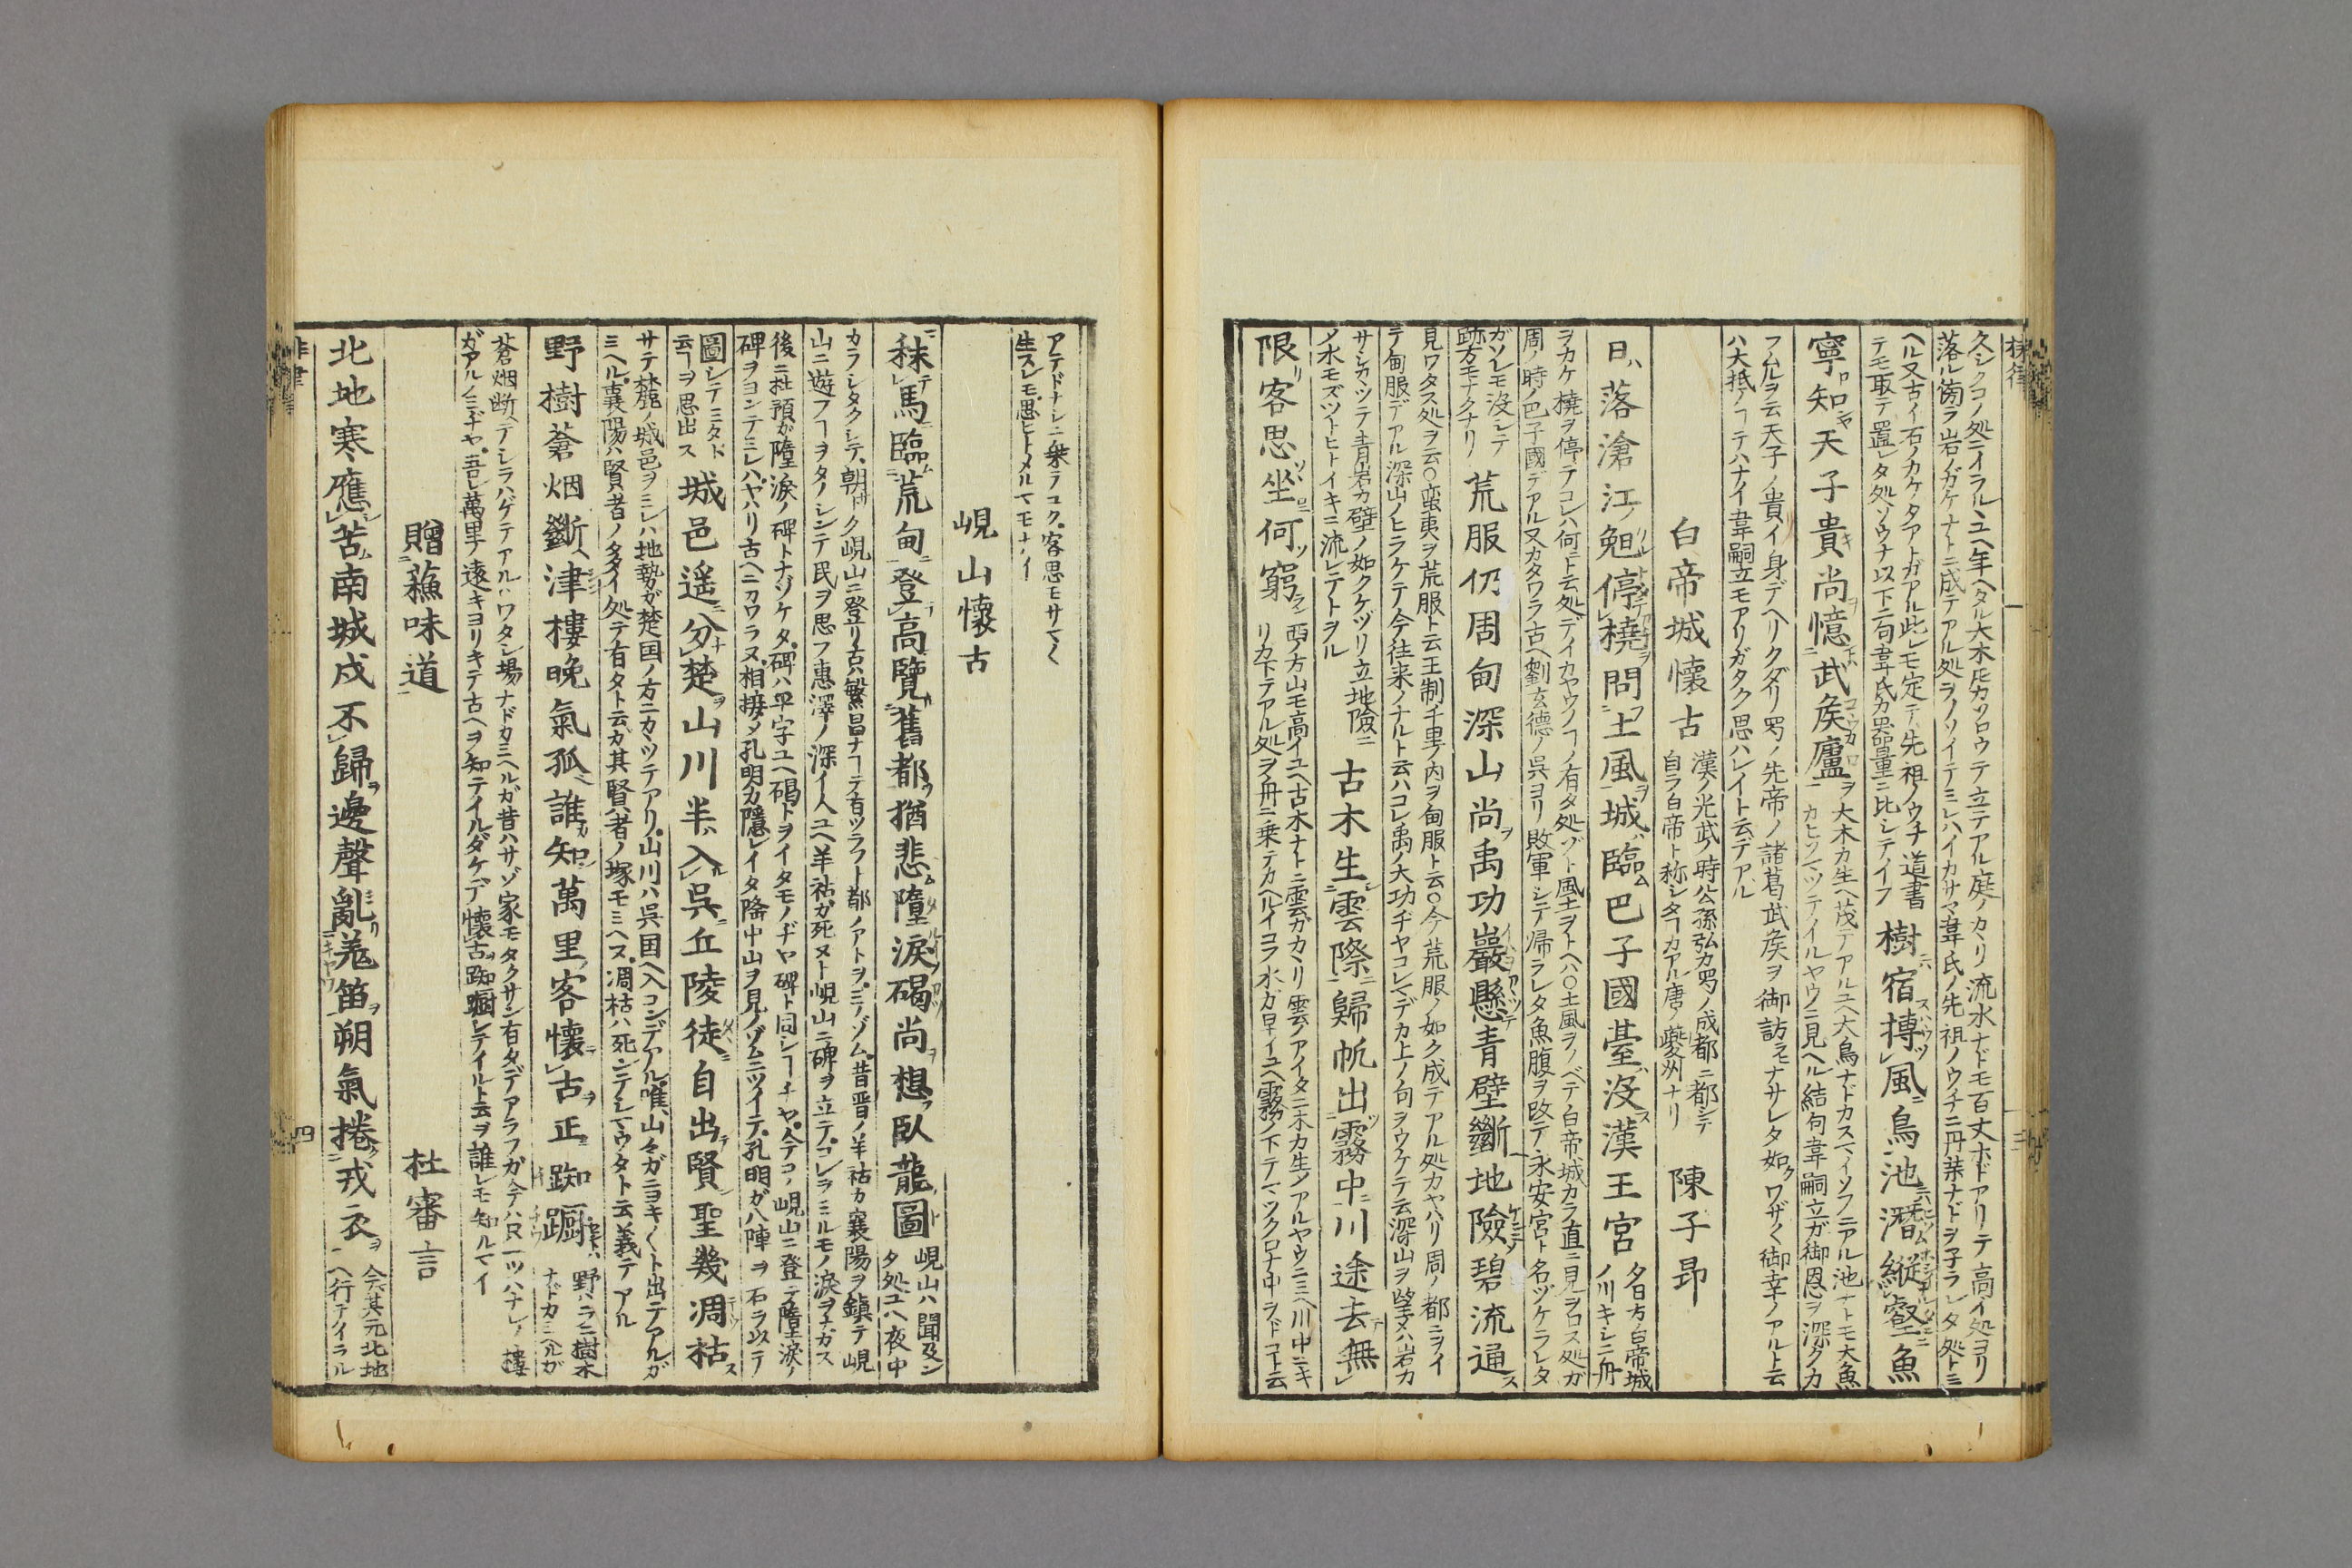 久シクコノ処ニイラルヽユヘ年ヘタル大木ドモカソロウテ立テアル庭ノカヽリ流水ナドモ百丈ホドアリテ高イ処ヨリ
落ル傍ラ岩ノガケナトニ成テアル処ヲノソイテミレハイカサマ韋氏ノ先祖ノウチニ丹葉ナドヲ子ラレタ処トミ
ヘル又古イ石ノカケタアトガアル此レモ定テ先祖ノウチ道書
テモ取テ置レタ処ソウナ以下二句韋氏カ器量ニ比シテイフ
樹宿摶風鳥池潛縱壑魚
寧知天子貴尚憶武矦廬
大木カ生ヘ茂テアルユヘ大鳥ナドカスマイソフニアル池ナトモ大魚
カヒソマツテイルヤウニ見ヘル結句韋嗣立ガ御恩ヲ深クカ
フムルヲ云天子ノ貴イ身デヘリクダリ蜀ノ先帝ノ諸葛武矦ヲ御訪ラヒナサレタ如クワザ〳〵御幸ノアルト云
ハ大抵ノヿテハナイ韋嗣立モアリガタク思ハレイト云デアル
白帝城懷古
漢ノ光武ノ時公孫弘カ蜀ノ成都ニ都シテ
自ラ白帝ト称シタヿカアル唐ノ夔州ナリ
陳子昻
日落滄江晚停橈問土風城臨巴子國臺沒漢王宮
夕日方ノ白帝城
ノ川キシニ舟
ヲカケ橈ヲ停テコレハ何ニト云処デイカヤウノコノ有タ処ゾト風土ヲトヘハ〇土風ヲノベテ白帝城カラ直ニ見ヲロス処ガ
周ノ時ノ巴子國デアル又カタワラ古ヘ劉玄德ノ呉ヨリ敗軍シテ帰ラレタ魚腹ヲ改テ永安宮ト名ヅケラレタ
ガソレモ沒シテ
跡方モナクナリ
荒服仍周甸深山尚禹功巖懸青壁斷地險碧流通
見ワタス処ヲ云〇蛮夷ヲ荒服ト云王制千里ノ内ヲ甸服ト云〇今荒服ノ如ク成テアル処カヤハリ周ノ都ニヲイ
テ甸服デアル深山ノヒラケテ今往来ノナルト云ハコレ禹ノ大功ヂヤコレマデカ上ノ句ヲウケテ云深山ヲ望メハ岩カ
サシカヽツテ青岩カ壁ノ如クケヅリ立地險ニ
ノ水モズツトヒトイキニ流レテトヲル
古木生雲際歸帆出霧中川途去無
限客思坐何窮
西ノ方山モ高イユヘ古木ナトニ雲ガカヽリ雲ノアイタニ木カ生ノアルヤウニミヘ川中ニキ
リカ下テアル処ヲ舟ニ乗テカヘルイコフ水ガ早イユヘ霧ノ下テマツクロナ中ヲドコト云
アテドナシニ乗ラユク客思モサマ〳〵
生スレモ思ヒトメルマモナイ
峴山懷古
秣馬臨荒甸登高覽舊都猶悲墮淚碣尚想臥龍圖
峴山ハ聞及ン
タ処ユヘ夜中
カラシタクシテ朝トク峴山ニ登リ古ハ繁昌ナヿテ有ツラフト都ノアトヲミノゾム昔晋ノ羊祜カ襄陽ヲ鎮テ峴
山ニ遊フヿヲタノシンテ民ヲ思フ惠澤ノ深イ人ユヘ羊祜ガ死ヌト峴山ニ碑ヲ立テコレヲミルモノ淚ヲナガス
後ニ杜預ガ墮淚ノ碑トナヅケタ碑ハ平字ユヘ碣トヲイタモノヂヤ碑ト同シヿチヤ今コノ峴山ニ登テ墮淚ノ
碑ヲヨンテミレハヤハリ古ヘニカワラヌ相接メ孔明カ隱レイタ隆中山ヲ見ノゾムニツイテ孔明ガ八陣ヲ石ヲ以テ
圖シテミタド
云ヿヲ思出ス
城邑遥分楚山川半入呉丘陵徒自出賢聖幾凋枯
サテ麓ノ城邑ヲミレハ地勢ガ楚国ノ方ニカヽツテアリ山川ハ呉国ヘハヘコンデアル唯山々ガニヨキ〳〵ト出テアルガ
ミヘル襄陽ハ賢者ノ多イ処テ有タト云ガ其賢者ノ塚モミヘス凋枯ハ死ンテシマウタト云義テアル
野樹蒼烟斷津樓晚氣孤誰知萬里客懷古正踟躕
野ハラニ樹木
ナドカミヘルガ
蒼烟断テシラハゲテアルハワタシ場ナドカミヘルガ昔ハサゾ家モタクサン有タデアラフガ今ハ只一ツハナレノ樓
ガアルノミヂヤ吾レ萬里ノ遠キヨリキテ古ヘヲ知テイルダケデ懷古踟躕シテイルト云ヲ誰レモ知ルマイ
贈蘓味道
杜審言
北地寒應苦南城戍不歸邊聲亂羗笛朔氣捲戎衣
今ハ其元北地
ヘ行テイラル
四